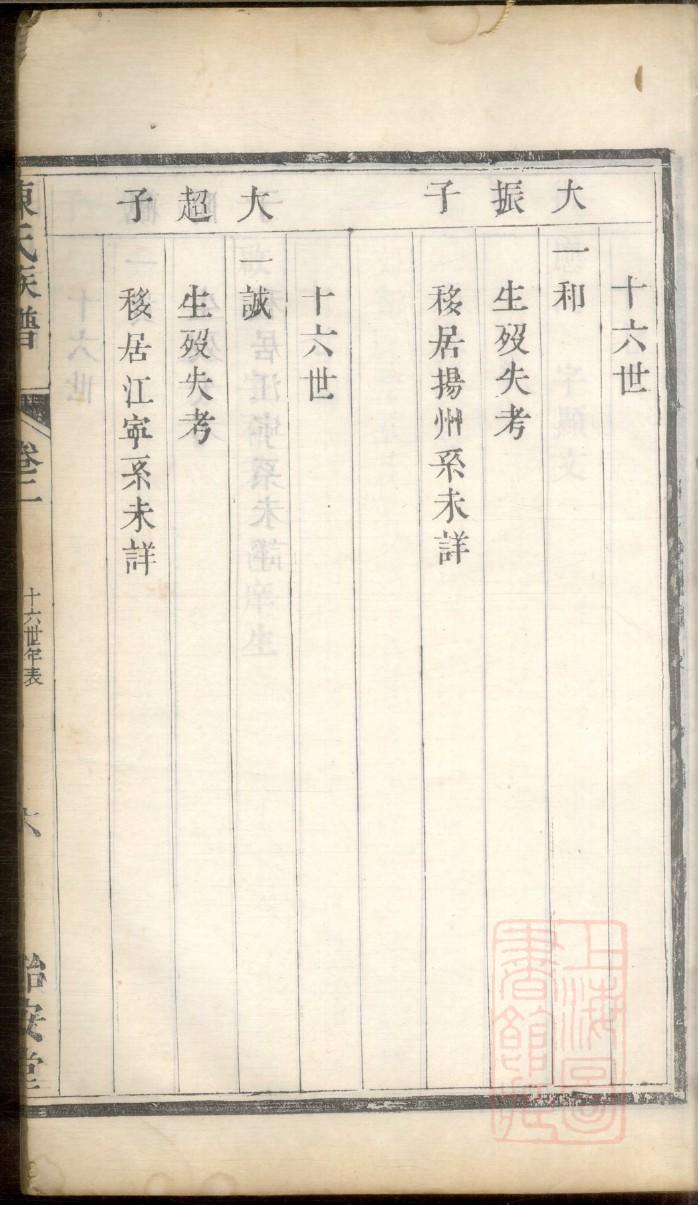 十六世
大振子
一和
生歿失考
移居揚州系未詳
十六世
大超子
一誠
生歿失考
移居江寧系未詳
陳氏族譜
卷二
十六世年表
六
怡安堂
上海圖書館藏